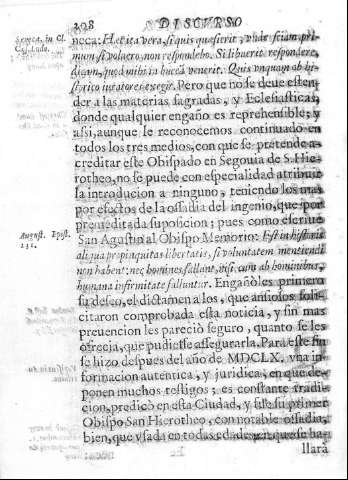 208 DISCVRSO
Seneca. in Cl.
Cæs. Ludo.
neca: Hæc ita vera, si quis quæsierit, vnde sciam, pri-
mum si voluero, non respondebo. Si libuerit respondere,
dicam, quod mihi in bucca venerit. Quis vnquam ab hi-
storico iuratores exegit. Pero que no se deue esten-
der a las materias sagradas, y Eclesiasticas,
donde qualquier engaño es reprehensible; y
assi, aunque le reconocemos continuado en
todos los tres medios, con que se pretende a-
creditar este Obispado en Segouia de S. Hie-
rotheo, no se puede con especialidad atribuir
la introducion a ninguno, teniendo los mas
por efectos de la ossadia del ingenio, que por
premeditada suposicion; pues como escriue
August. Epist.
131.
San Agustin al Obispo Memorio: Est in historia
aliqua propinquitas libertatis, si voluntatem mentiendi
non habent: nec homines fallant, nisi cum ab hominibus,
humana infirmitate falluntur. Engañòles primero
su deseo, el dictamen a los, que ansiosos soli-
citaron comprobada esta noticia, y sin mas
preuencion les pareciò seguro, quanto se les
ofrecia, que pudiesse assegurarla. Para este fin
se hizo despues del año de MDCLX. vna in-
formacion autentica, y juridica, en que de-
ponen muchos testigos; es constante tradi-
cion, predicò en esta Ciudad, y fue su primer
Obispo San Hierotheo, con notable ossadia,
bien, que vsada en todas edades, en que se ha-
llarà